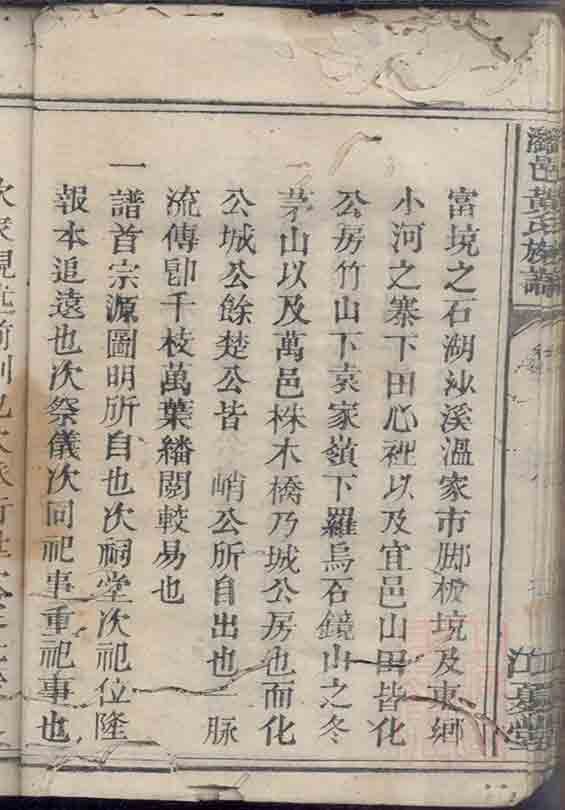 瀏邑黃氏族譜
江夏堂
富境之石湖沙溪溫家市脚板境及東鄉
小河之寨下田心裡以及宜邑山田皆化
公房竹山下袁家嶺下羅烏石鏡山之冬
茅山以及萬邑株木橋乃城公房也而化
公城公餘楚公皆 峭公所自出也一脉
流傳卽千枝萬葉繙閱較易也
一譜首宗源圖明所自也次祠堂次祀位隆
報本追遠也次祭儀次同祀事重祀事也